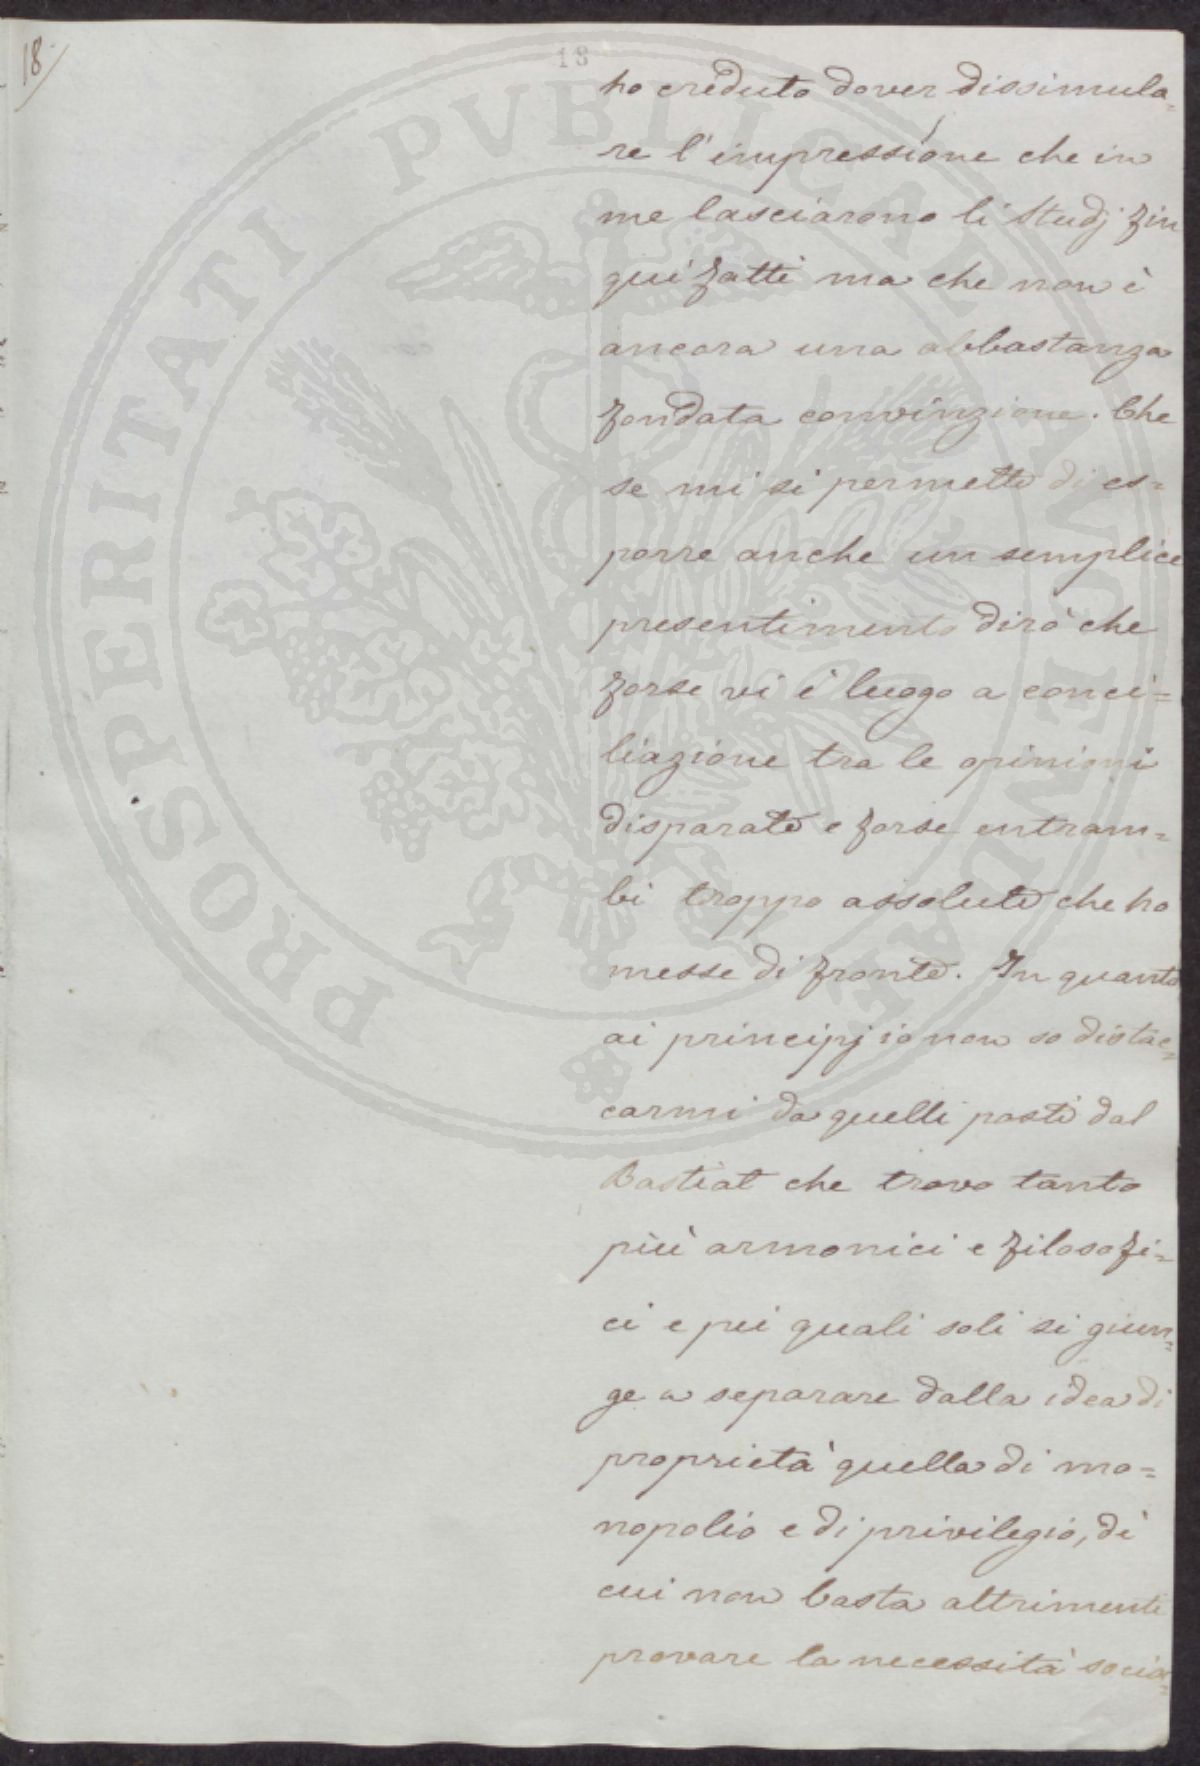 18
18
ho creduto dover dissimula-
re l'impressione che in
me lasciarono li Studj fin
quì fatti ma che non è
ancora una abbastanza
fondata convinzione. Che
se mi si permette di es=
porre anche un semplice
presentimento dirò che
forse vi è luogo a conci=
liazione tra le opinioni
disparate e forse entram=
bi troppo assolute che ho
messe di fronte. In quanto
ai principj io non so distac=
carmi da quelli posti dal
Bastiat che trovo tanto
più armonici e filosofi=
ci e pei quali soli si giun=
ge a separare dalla idea di
proprietà quella di mo=
nopolio e di privilegio, di
cui non basta altrimenti
provare la necessità socia=
PROSPERITATI PVBLICAE AVGENDAE